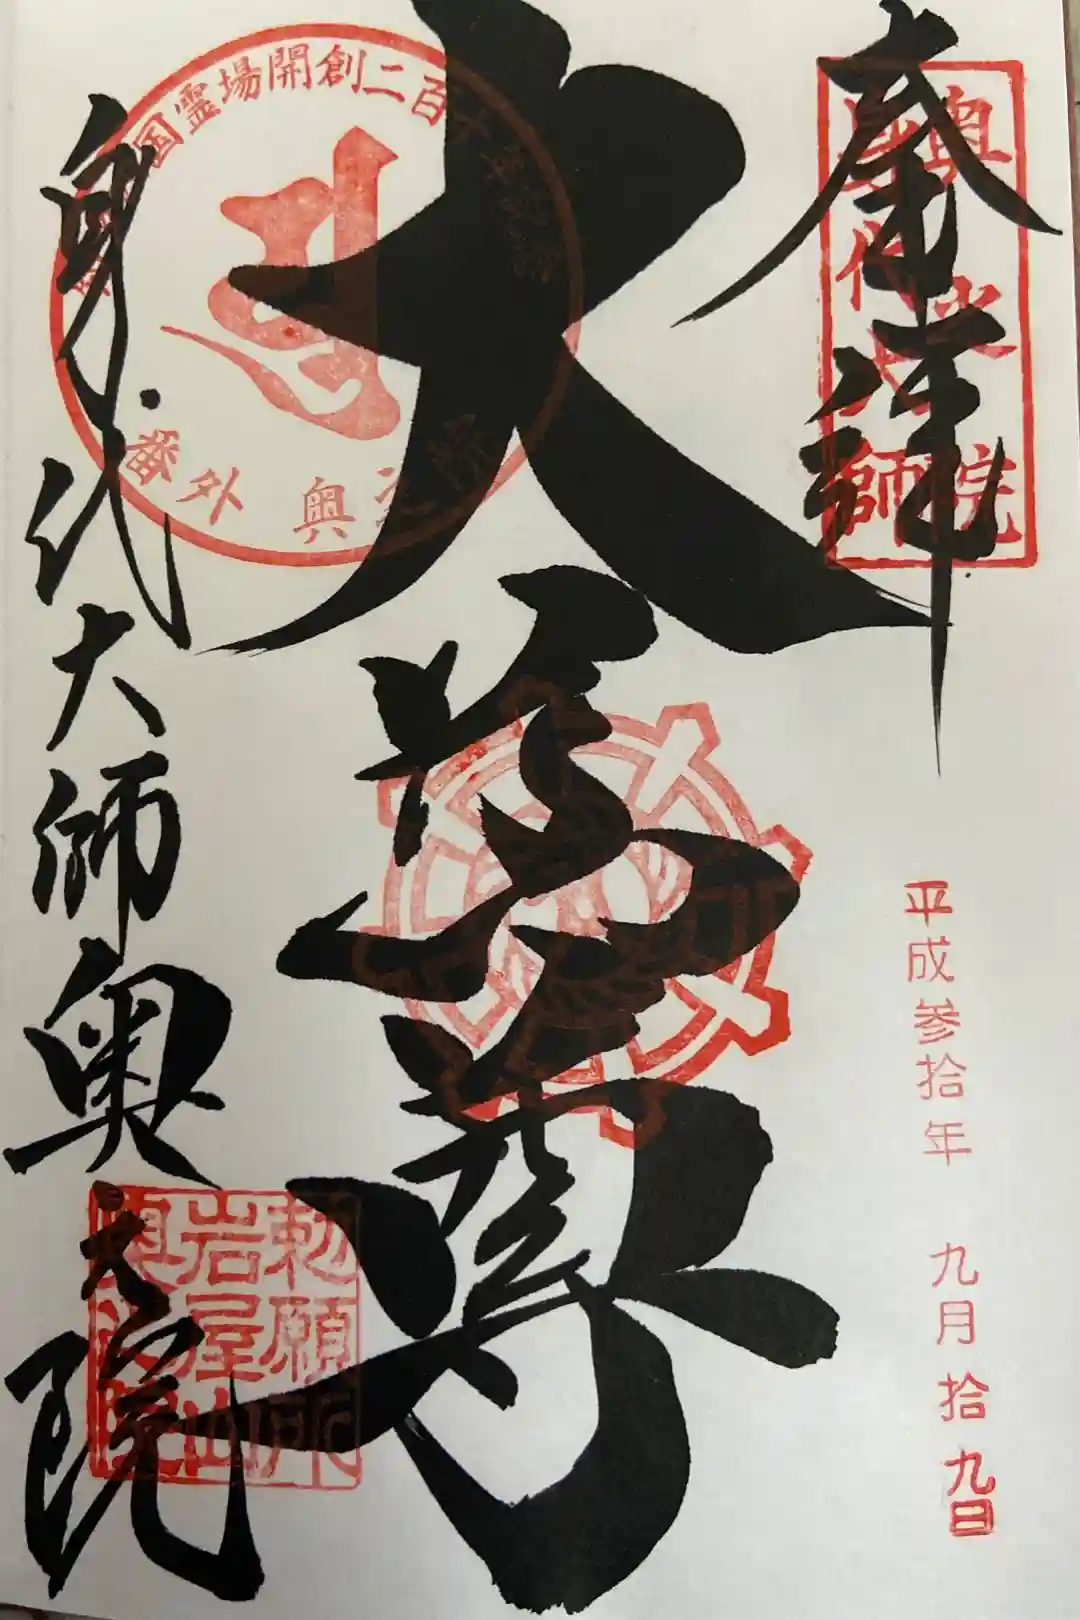 奉拝
奥之院
身代大師
平成参拾年 九月拾九日
大師尊
国霊場開創二百
番外 奥之院
身代大師奥之院
勅願所
岩屋山
奥之院